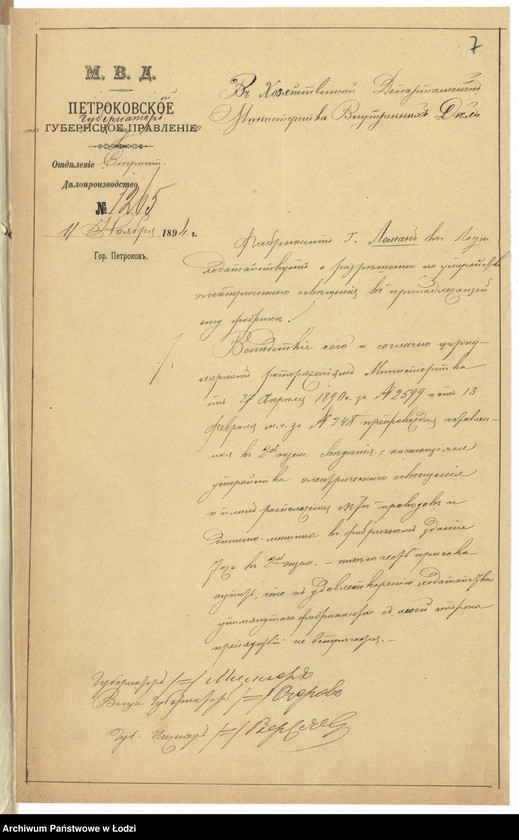 7
М. В. Д.
ПЕТРОКОВСКОЕ
Губернаторъ
ГУБЕРНСКОЕ ПРАВЛЕНІЕ
Отдѣленіе Строит.
Дѣлопроизводство
№ 1265
11 Ноября 1894 г.
Гор. Петроковъ.
Въ Хозяйственный Департаментъ
Министерства Внутреннихъ Дѣлъ
Фабрикантъ Г. въ Лодзи
ходатайствуетъ о разрѣшеніи на устройство
электрическаго освѣщенія въ принадлежащей
ему фабрикѣ.
Вслѣдствіе сего и согласно цирку-
Министерства
отъ Апрѣля 1890 г. за № 2599 и отъ 13
февраля м.г. за № 248 препровождая
въ 2хъ экзем. свѣдѣнія, касающіяся
устройства электрическаго освѣщенія
и планъ расположенія проводовъ и
динамо-машины въ фабричномъ зданіи
въ 2хъ экзем. — имѣю честь присово-
купить, что къ удовлетворенію ходатайства
упомянутаго фабриканта съ моей стороны
препятствій не встрѣчается. —
Губернаторъ /—/ Миллеръ
Вице Губернаторъ /—/